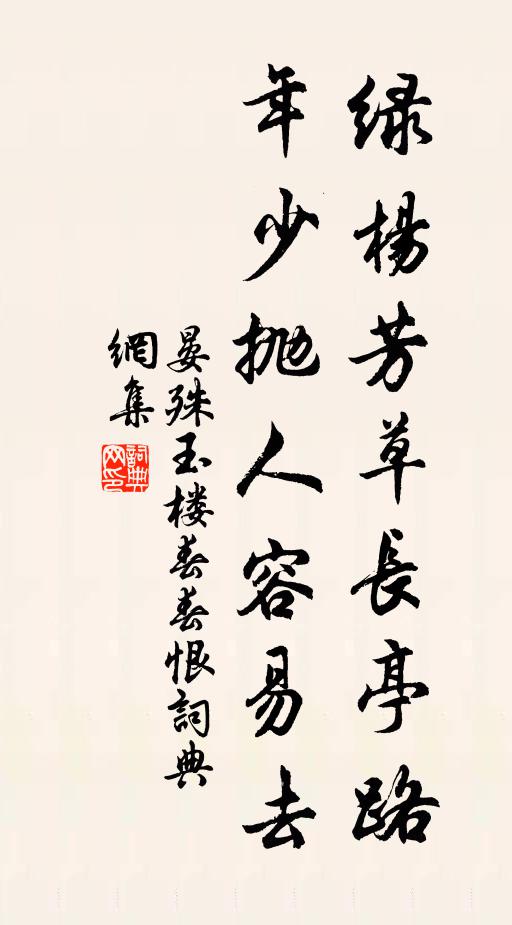 绿楊芳草長亭路
年少抛人容易去
晏殊玉楼春春恨詞典
網集
詞典
网印